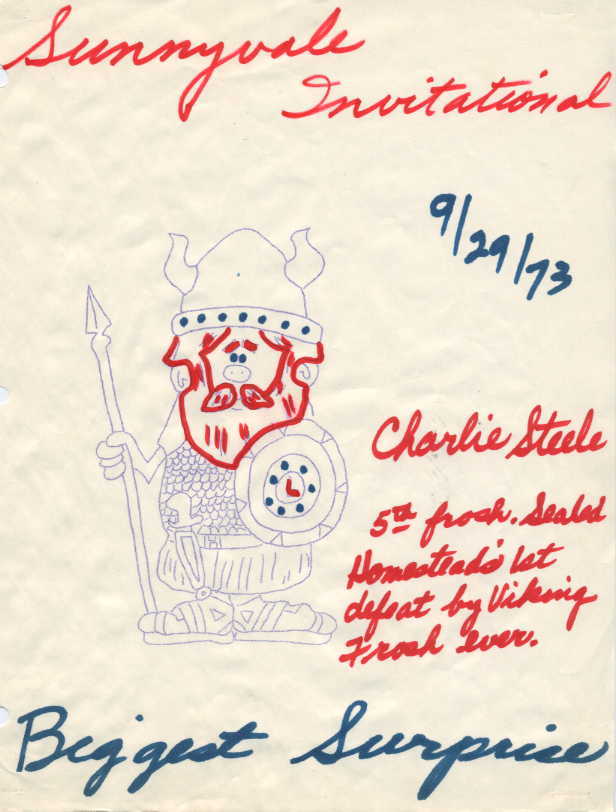 Sunnyvale
Invitational
9/29/73
Charlie Steele
5th frosh. Sealed
Homestead's 1st
defeat by Viking
Frosh ever.
Biggest Surprise